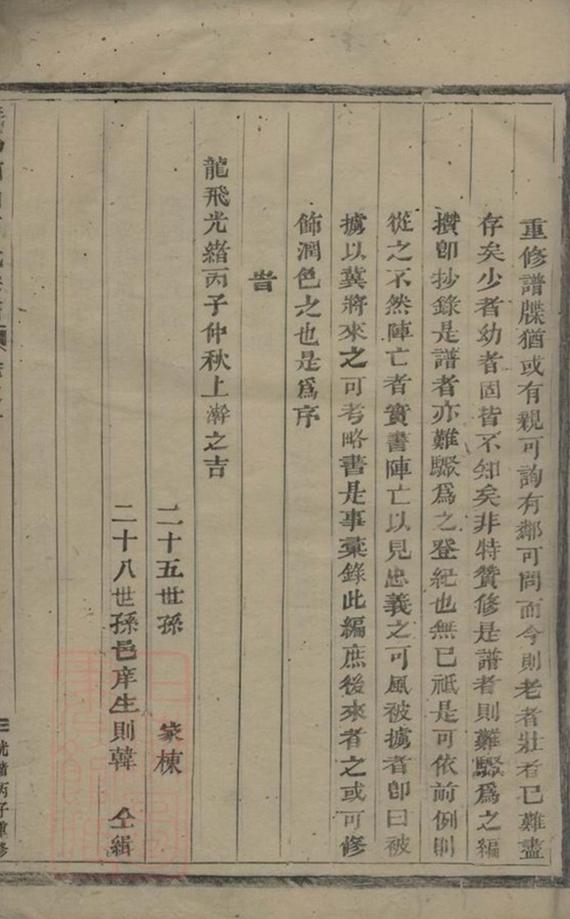 重修譜牒猶或有親可詢有鄰可問而今則老者壯者已難盡
存矣少者幼者固皆不知矣非特贊修是譜者則難驟為之編
攢即抄錄是譜者亦難驟為之登紀也無已祗是可依前例則
從之不然陣亡者實書陣亡以見忠義之可風被擄者即曰被
擄以冀將來之可考略書是事彙錄此編庶後來者之或可修
飾潤色之也是為序
旹
龍飛光緒丙子仲秋上澣之吉
二十五世孫 家棟
二十八世孫邑庠生則韓 仝緝
光緒丙子重修